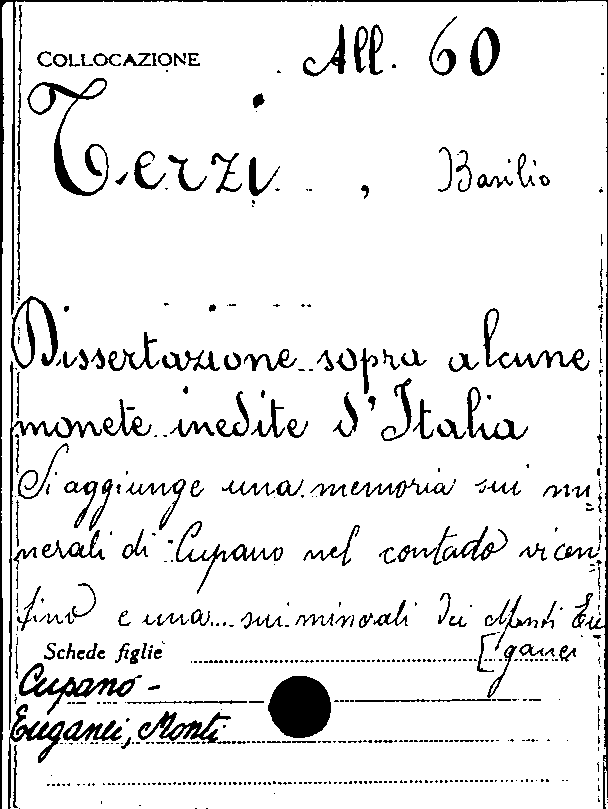 COLLOCAZIONE All. 60
Terzi, Basilio
Dissertazione sopra alcune
monete inedite d'Italia
Si aggiunge una memoria sui mi=
nerali di Cupano nel contado vicen=
tino e una sui minerali dei Monti Eu
[ganei
Schede figlie
Cupano -
Euganei, Monti